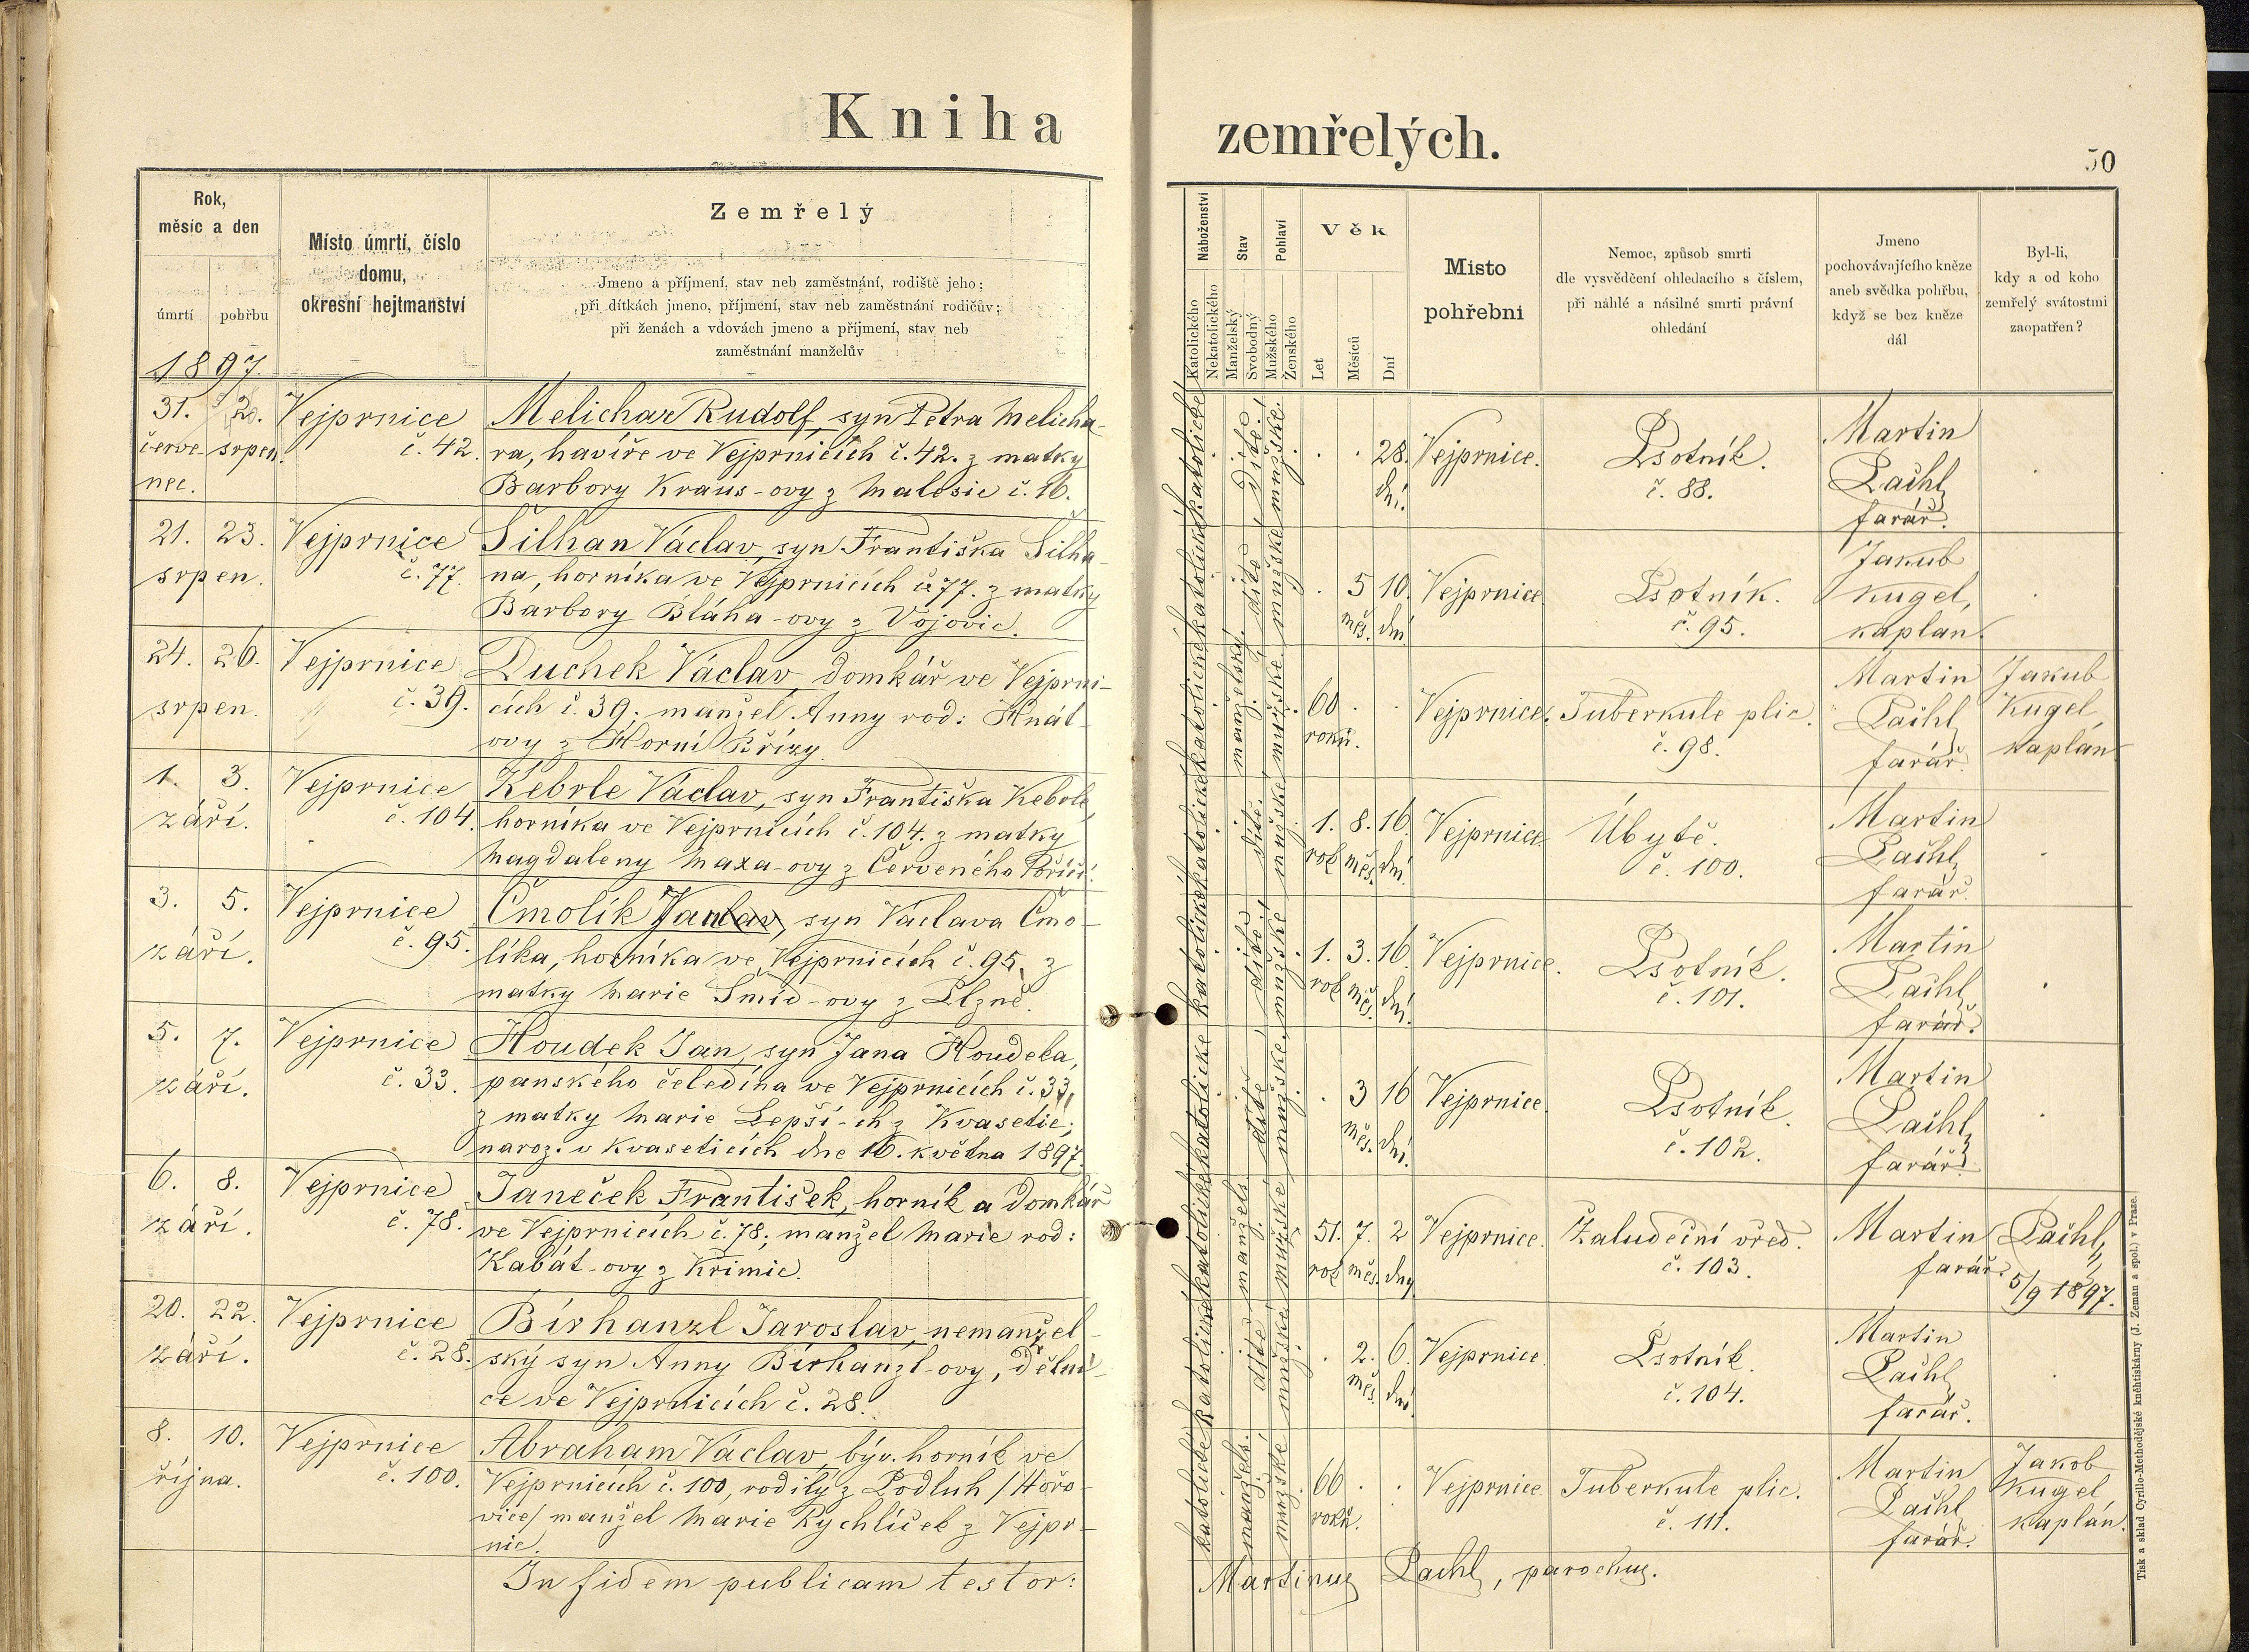 Kniha
zemřelých.
50
Rok,
měsíc a den
úmrtí
pohřbu
Místo úmrtí, číslo
domu,
okresní hejtmanství
Zemřelý
Jmeno a příjmení, stav neb zaměstnání, rodiště jeho;
při dítkách jmeno, příjmení, stav neb zaměstnání rodičův;
při ženách a vdovách jmeno a příjmení, stav neb
zaměstnání manželův
Náboženství
Katolického
Nekatolického
Stav
Manželský
Svobodný
Pohlaví
Mužského
Ženského
Věk
Let
Měsíců
Dní
Místo
pohřební
Nemoc, způsob smrti
dle vysvědčení ohledacího s číslem,
při náhlé a násilné smrti právní
ohledání
Jmeno
pochovávajícího kněze
aneb svědka pohřbu,
když se bez kněze
dál
Byl-li,
kdy a od koho
zemřelý svátostmi
zaopatřen?
1897.
31. 2. Vejprnice Melichar Rudolf, syn Petra Melicha-
červe- srpen. č. 42. ra, havíře ve Vejprnicích č. 42. z matky
nec. Barbory Kraus-ovy z Malesic č. 16.
katolické dítě mužské. 28. dní. Vejprnice. Psotník. č. 88. Martin Pachl, farář.
21. 23. Vejprnice Šilhan Václav, syn Františka Šilha-
srpen. č. 77. na, horníka ve Vejprnicích č. 77. z matky
Barbory Bláha-ovy z Vojovic.
katolické dítě mužské 5 měs. 10. dní Vejprnice Psotník. č. 95. Jakub Kugel, kaplan.
24. 26. Vejprnice Duchek Václav domkář ve Vejprni-
srpen. č. 39. cích č. 39; manžel Anny rod: Knát-
ovy z Horní Břízy.
katolické manželský. mužské 60 roků. Vejprnice. Tuberkule plic. č. 98. Martin Pachl, farář. Jakub Kugel, kaplán.
1. 3. Vejprnice Kebrle Václav, syn Františka Kebrle,
září. č. 104. horníka ve Vejprnicích č. 104. z matky
Magdaleny Maxa-ovy z Červeného Poříčí.
katolické dítě. mužské 1. rok 8. měs. 16. dní. Vejprnice Úbytě. č. 100. Martin Pachl, farář.
3. 5. Vejprnice Čmolík Jan, syn Václava Čmo-
září. č. 95. líka, horníka ve Vejprnicích č. 95, z
matky Marie Šmíd-ovy z Plzně.
katolické dítě mužské 1. rok 3. měs. 16. dní. Vejprnice. Psotník. č. 101. Martin Pachl, farář.
5. 7. Vejprnice Houdek Jan, syn Jana Houdeka,
září. č. 33. panského čeledína ve Vejprnicích č. 33,
z matky Marie Lepší-ch z Kvasetic;
naroz. v Kvaseticích dne 16. května 1897.
katolické dítě mužské. 3 měs. 16 dní. Vejprnice. Psotník. č. 102. Martin Pachl, farář.
6. 8. Vejprnice Janeček František, horník a domkář
září. č. 78. ve Vejprnicích č. 78; manžel Marie rod:
Kabát-ovy z Křimic.
katolické manžels. mužské 51. rok 7. měs. 2 dny Vejprnice. Žaludeční vřed. č. 103. Martin Pachl, farář. 5/9 1897.
20. 22. Vejprnice Birhanzl Jaroslav, nemanžel-
září. č. 28. ský syn Anny Birhanzl-ovy, dělni-
ce ve Vejprnicích č. 28.
katolické dítě mužské 2. měs. 6. dní. Vejprnice. Psotník. č. 104. Martin Pachl, farář.
8. 10. Vejprnice Abraham Václav, býv. horník ve
října. č. 100. Vejprnicích č. 100, rodilý z Podluh /Hořo-
vice/ manžel Marie Rychlíček z Vejpr-
nic.
katolické manžels. mužské 66 roků. Vejprnice. Tuberkule plic. č. 111. Martin Pachl farář. Jakob Kugel kaplán.
In fidem publicam testor:
Martinus Pachl, parochus.
Tisk a sklad Cyrillo-Methodějské knihtiskárny (J. Zeman a spol.) v Praze.